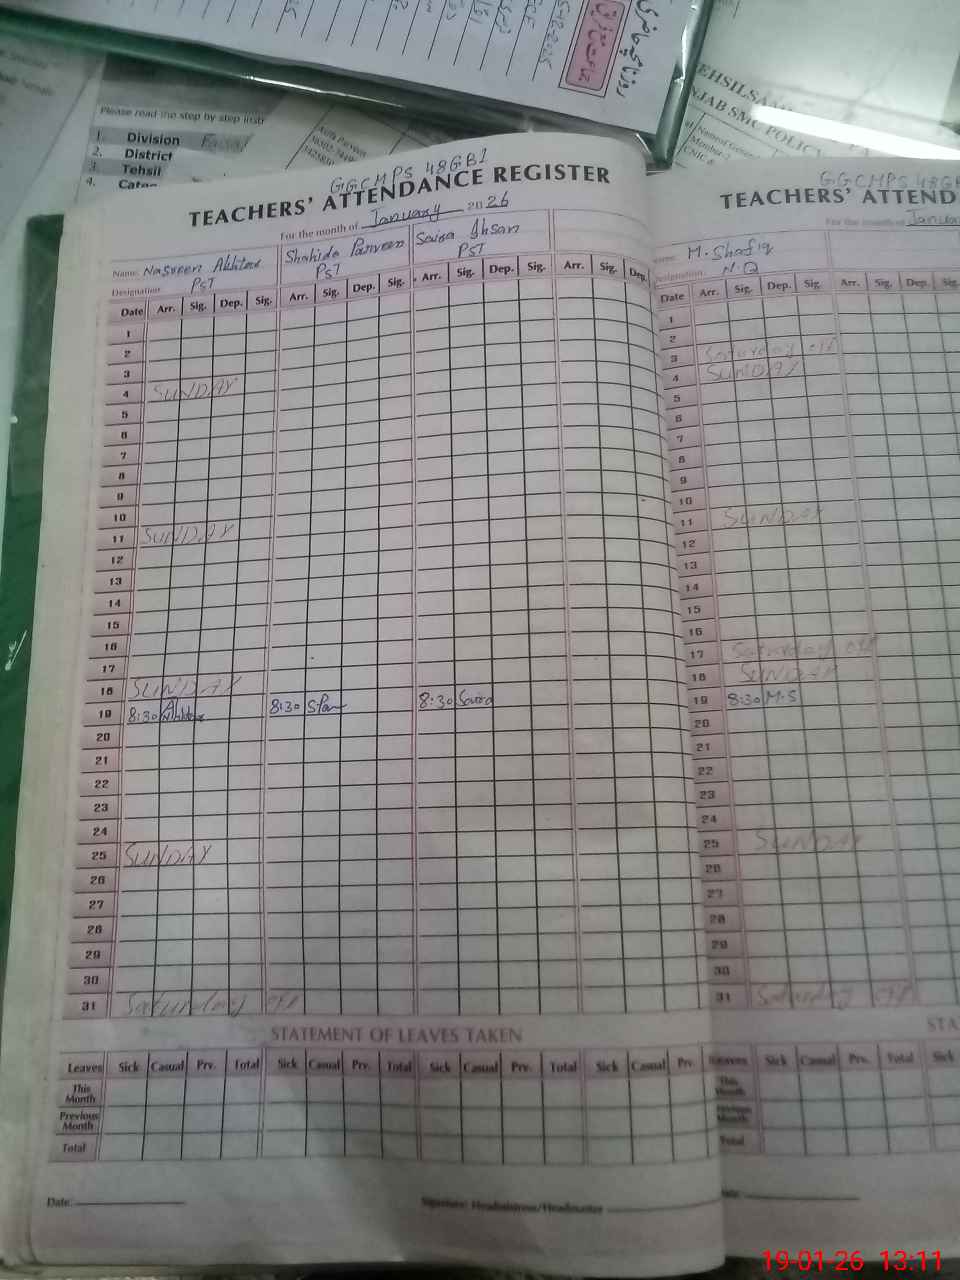 Please read the step by step instr
1. Division
2. District
3. Tehsil
4.
GGCMPS 48GB1
TEACHERS' ATTENDANCE REGISTER
For the month of January 2026
Name: Nasreen Akhtar Shahida Parveen Saira Ahsan
Designation: PST PST PST
Date Arr. Sig. Dep. Sig. Arr. Sig. Dep. Sig. Arr. Sig. Dep. Sig. Arr. Sig. Dep.
1
2
3
4 SUNDAY
5
6
7
8
9
10
11 SUNDAY
12
13
14
15
16
17
18 SUNDAY
19 8:30 Akhtar 8:30 S.Par 8:30 Saira
20
21
22
23
24
25 SUNDAY
26
27
28
29
30
31 Saturday off
STATEMENT OF LEAVES TAKEN
Leaves Sick Casual Prv. Total Sick Casual Prv. Total Sick Casual Prv. Total Sick Casual Prv.
This Month
Previous Month
Total
Date: Signature: Headmistress/Headmaster
GGCMPS 48GB
TEACHERS' ATTEND
For the month of Janua
Name: M. Shafiq
Designation: N.Q
Date Arr. Sig. Dep. Sig. Arr. Sig. Dep. Sig.
1
2
3 Saturday off
4 SUNDAY
5
6
7
8
9
10
11 SUNDAY
12
13
14
15
16
17 Saturday off
18 SUNDAY
19 8:30 M.S
20
21
22
23
24
25 SUNDAY
26
27
28
29
30
31 Saturday off
STA
Leaves Sick Casual Prv. Total Sick
This Month
Previous Month
Total
19-01-26 13:11